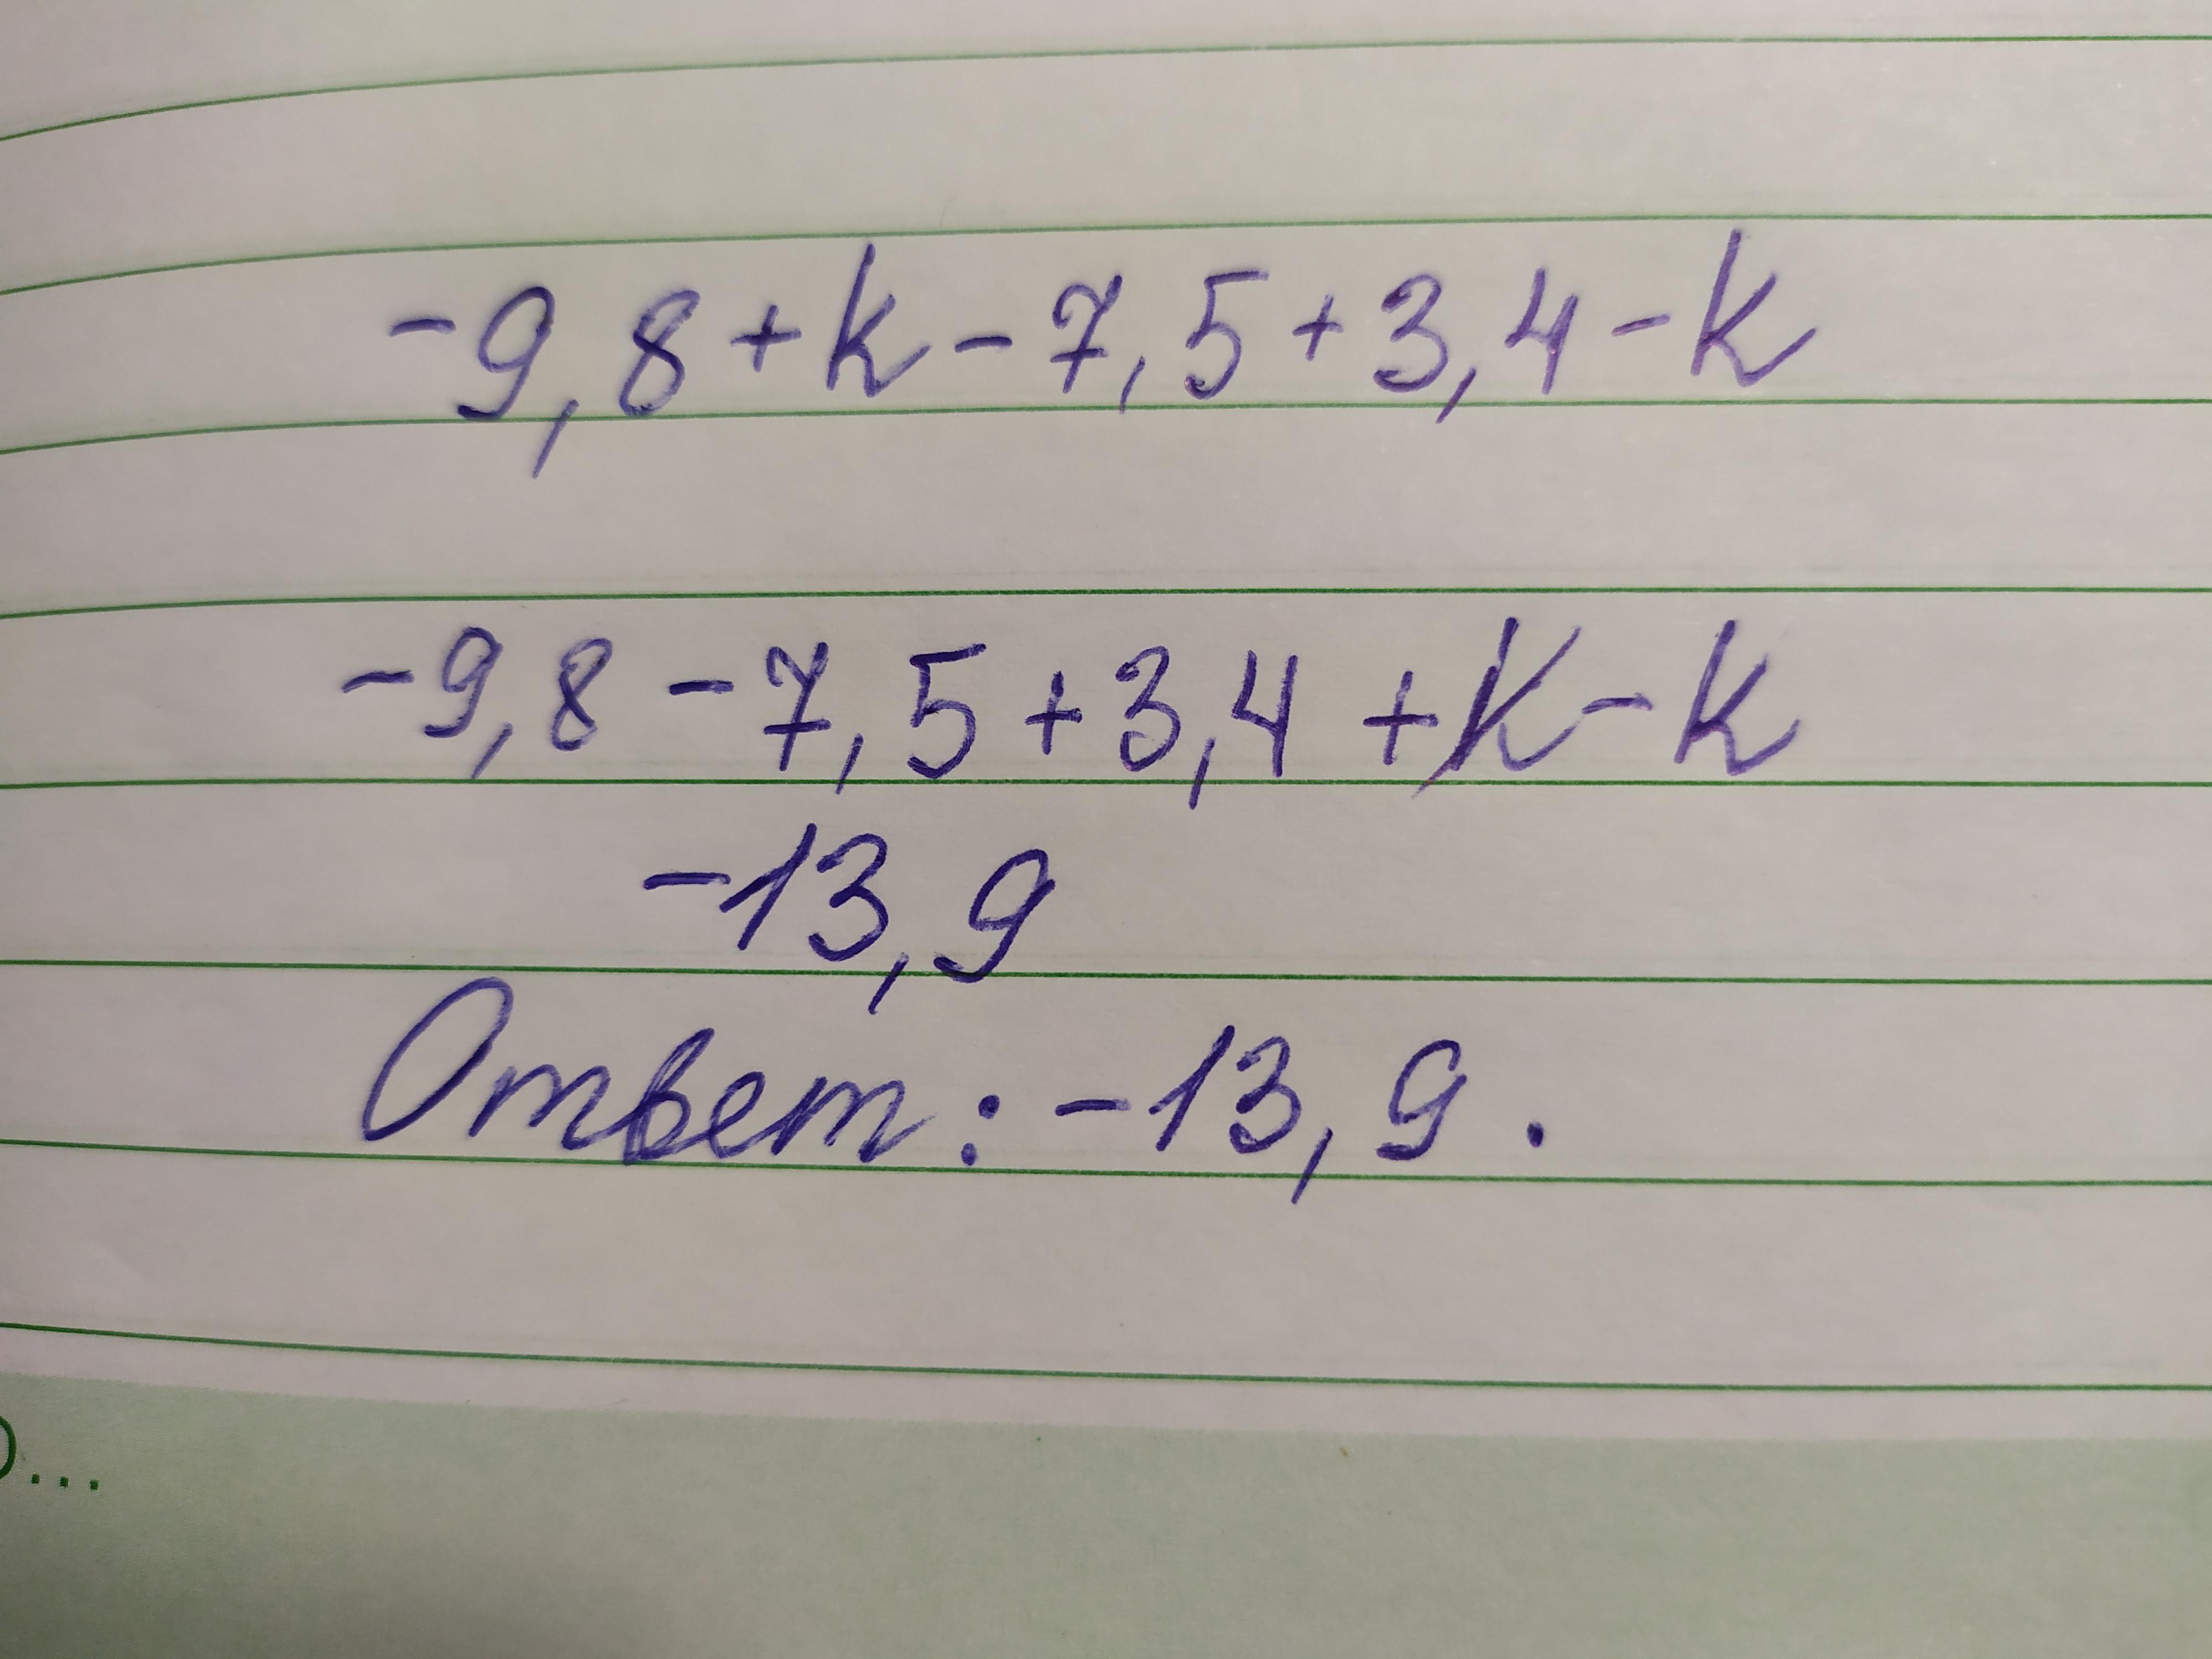 -9,8+k-7,5+3,4-k
-9,8-7,5+3,4+k-k
-13,9
Ответ: -13,9.
...